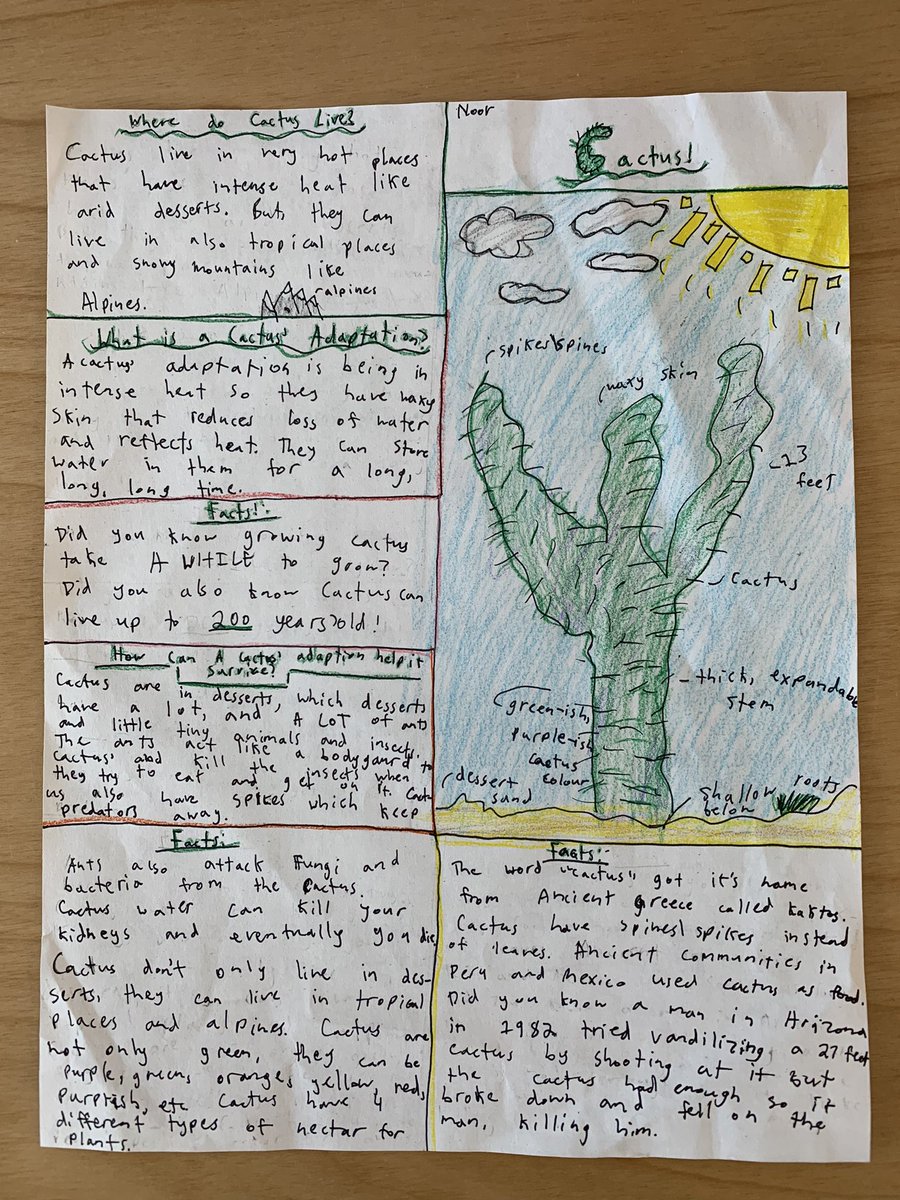 Where do Cactus Live?
Cactus live in very hot places
that have intense heat like
arid desserts. But, they can
live in also tropical places
and snowy mountains like
Alpines.
alpines
What is a Cactus' Adaptation?
A cactus' adaptation is being in
intense heat so they have waxy
skin that reduces loss of water
and reflects heat. They can store
water in them for a long,
long, long time.
Facts!:
Did you know growing cactus
take A WHILE to grow?
Did you also know Cactus can
live up to 200 years old!
How Can A Cactus' adaption help it
Survive?
Cactus are in desserts, which desserts
have a lot, and A LOT of ants
and little tiny animals and insects.
The ants act like a bodyguard to
Cactus' and kill the insects when
they try to eat and get on it. Cact
us also have spikes which keep
predators away.
Facts:
Ants also attack Fungi and
bacteria from the Cactus.
Cactus water can kill your
kidneys and eventually you die
Cactus don't only live in des-
serts, they can live in tropical
places and alpines. Cactus are
not only green, they can be
purple, green, orange, yellow, red,
purpish, etc Cactus have 4
different types of nectar for
plants.
Noor
Cactus!
spikes\spines
waxy skin
13
feet
Cactus
thick, expandable
stem
green-ish,
purple-ish
cactus
colour
dessert
sand
shallow
below
roots
Facts:
The word "cactus" got it's name
from Ancient greece called kaktos.
Cactus have spines\spikes instead
of leaves. Ancient communities in
Peru and Mexico used cactus as food.
Did you know a man in Arizona
in 1982 tried vandilizing a 27 feet
cactus by shooting at it but
the cactus had enough so it
broke down and fell on the
man, killing him.